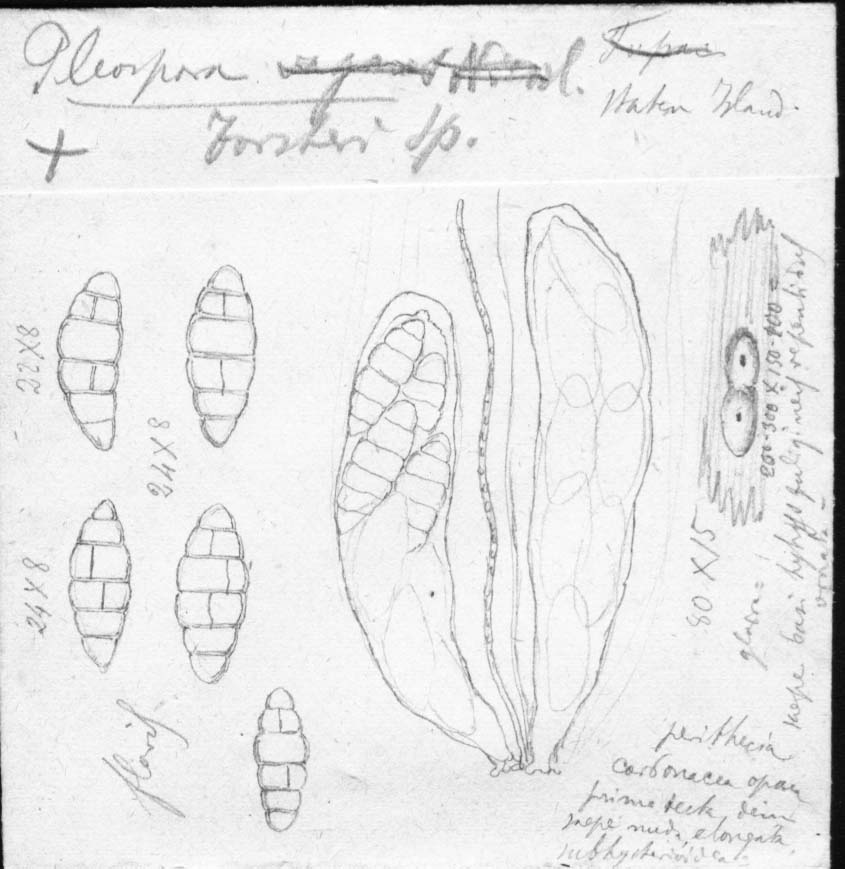 Pleospora
Staten Island.
+ Forsteri Sp.
22X8
24X8
24X8
flavis
80 X 15
200-300 X 150-200 =
glabra=
saepe basi hyphis fuligineis repentibus
ornata -
perithecia
carbonacea opaca
prime tecta dein
saepe nuda, elongata
subhysterioidea.